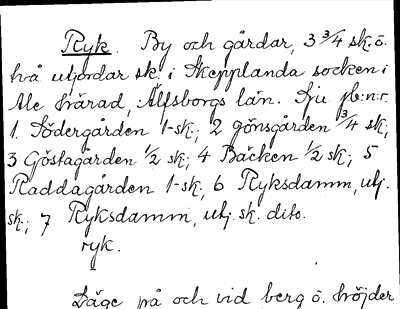 Ryk. By och gårdar, 3 3/4 sk. o.
två utjordar sk. i Skepplanda socken i
Ale härad, Älfsborgs län. Sju jb:n:r.
1. Södergården 1-sk; 2 Gönsgården 3/4 sk;
3 Göstagården 1/2 sk; 4 Bäcken 1/2 sk; 5
Raddagården 1-sk; 6 Ryksdamm, utj.
sk.; 7 Ryksdamm, utj. sk. dito.
ryk.
Läge på och vid berg o. höjder